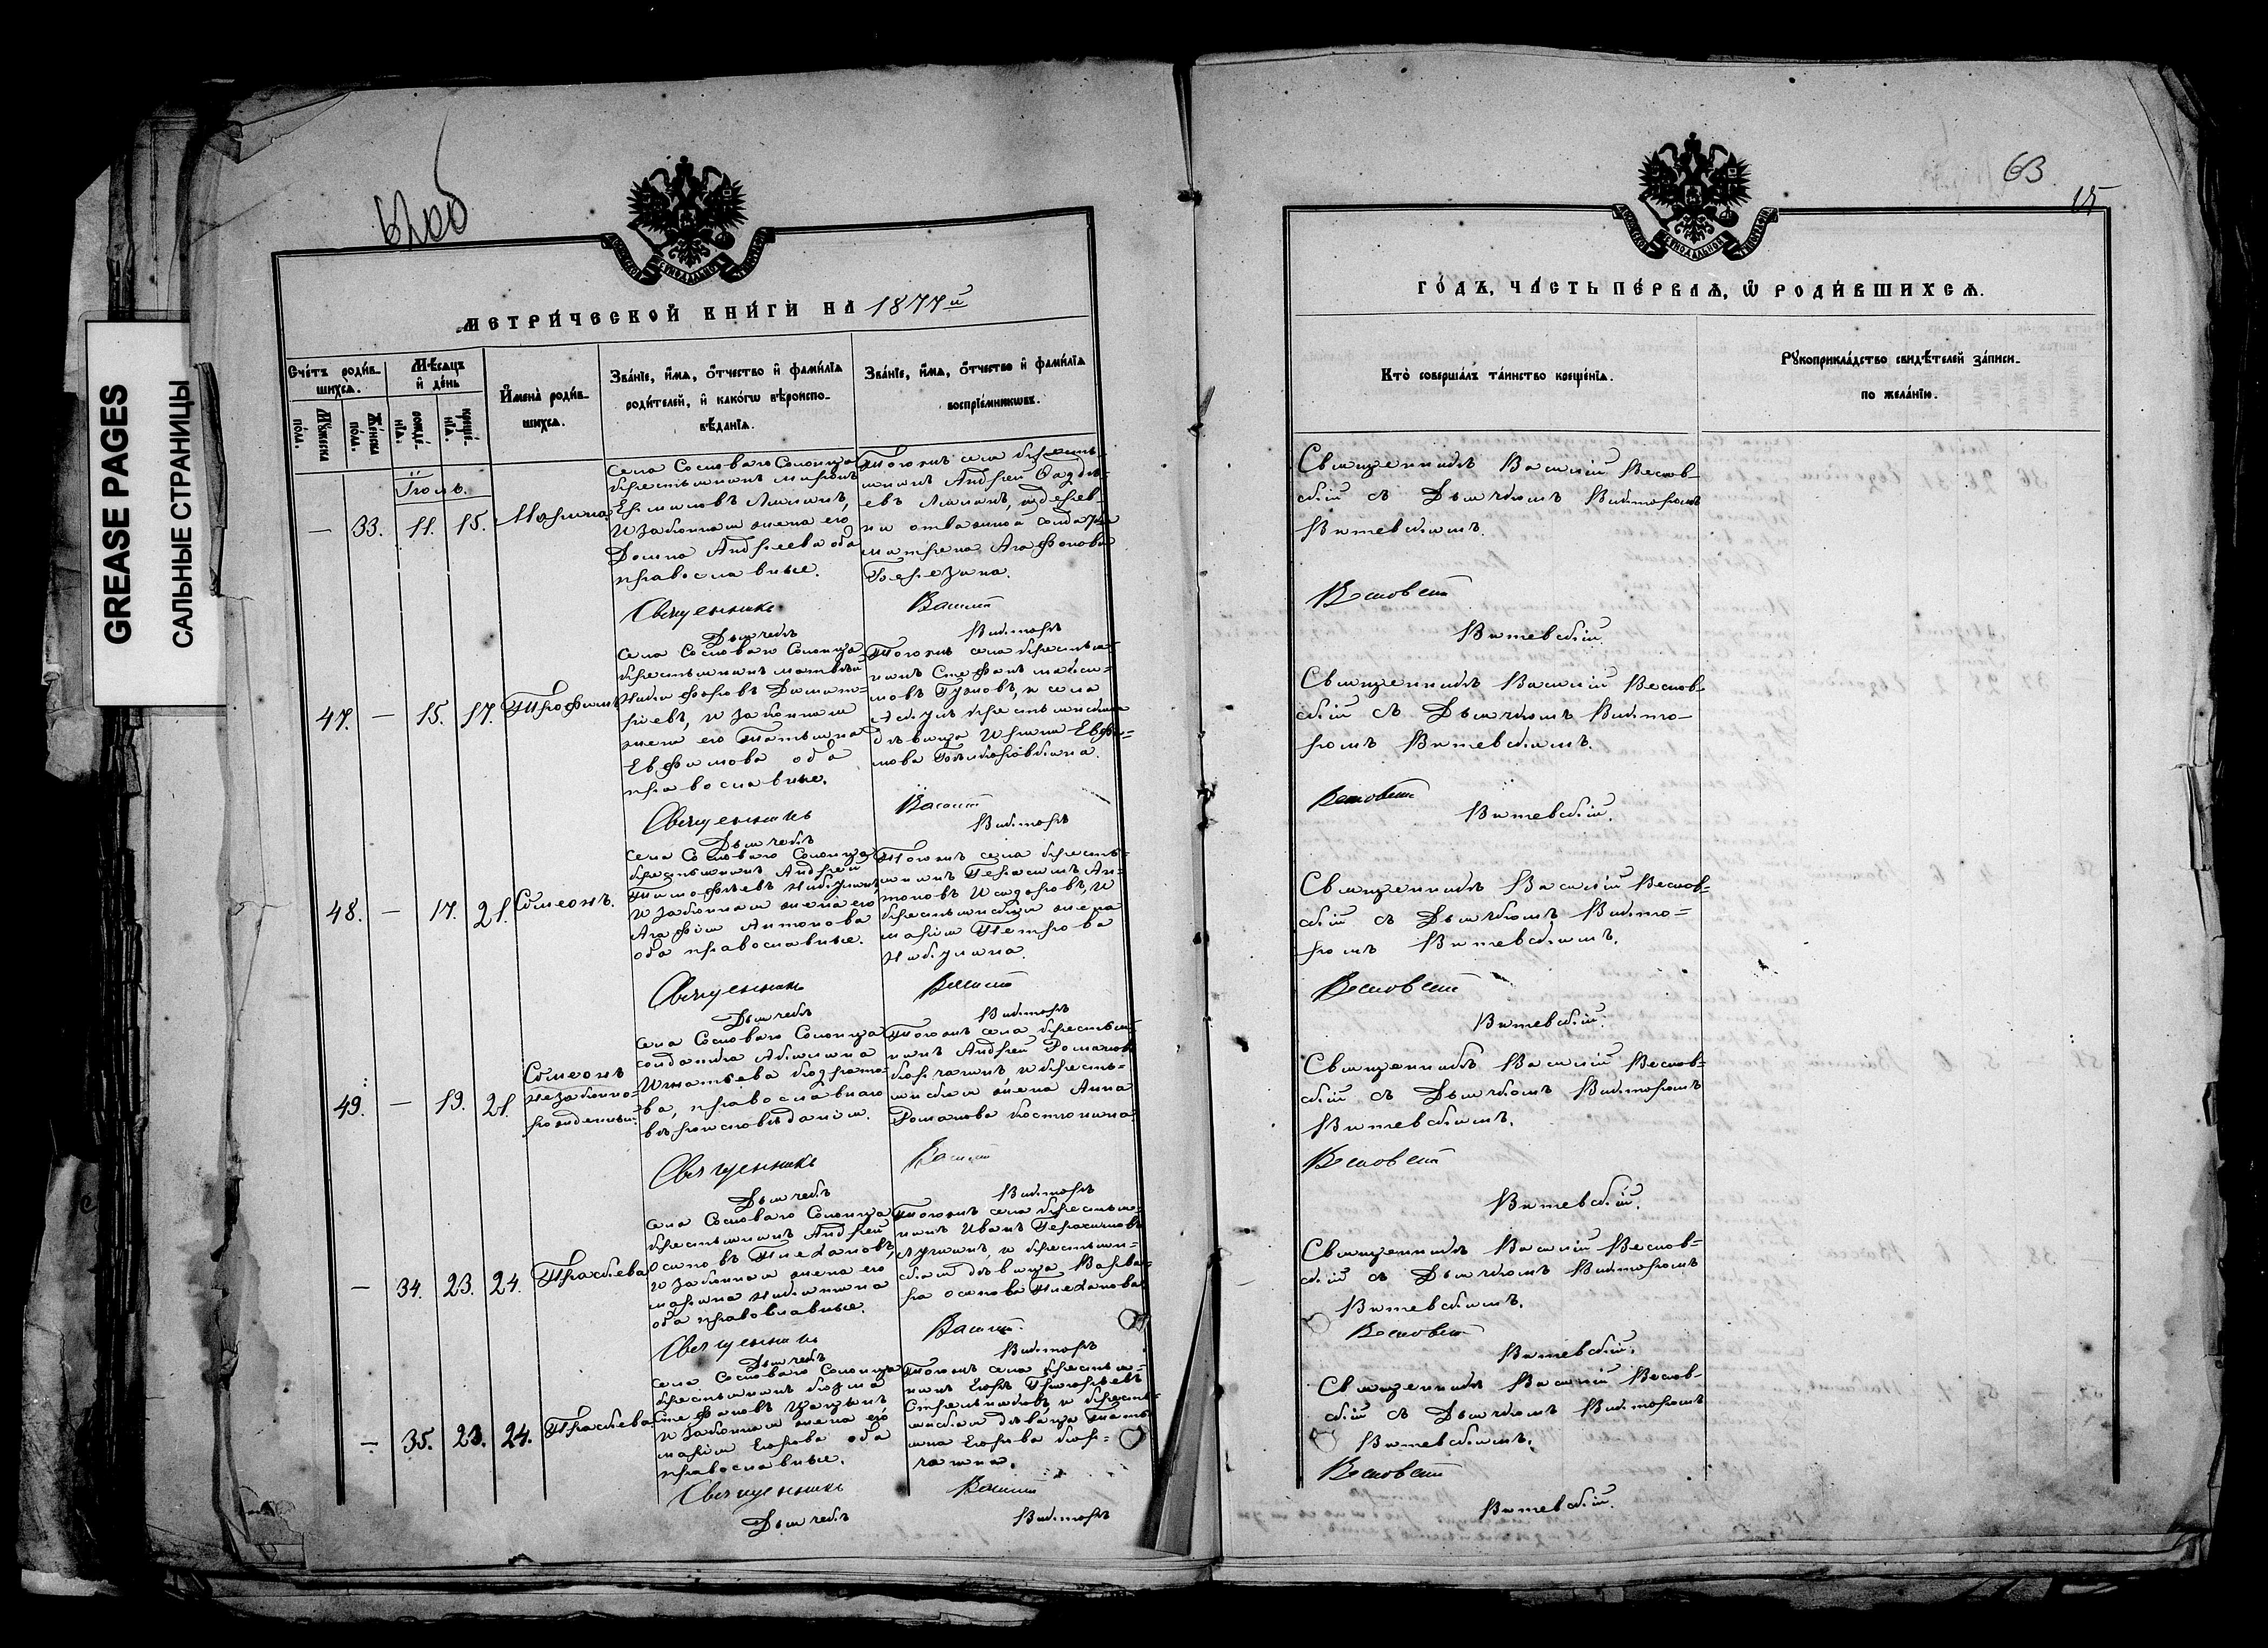 GREASE PAGES
САЛЬНЫЕ СТРАНИЦЫ
62об
МЕТРИЧЕСКОЙ КНИГИ НА 1877й
Счетъ родив-
шихся.
Мѣсяцъ
и день
Мужеска
пола.
Женска
пола.
рожде-
нія.
креще-
нія.
Имена родив-
шихся.
Званіе, имя, отчество и фамилія
родителей, и какого вѣроиспо-
вѣданія.
Званіе, имя, отчество и фамилія
воспріемниковъ.
Іюль.
— 33. 11. 15. Марина
Села Сосноваго Солонца
крестьянинъ Миронъ
Ермиловъ
и законная жена его
Домна Андреева оба
православные.
Тогожъ села кресть-
янинъ Андрей Фадде-
евъ
солдатка
Матрена Агафонова
Березина.
Священникъ Василій
Дьячекъ Викторъ
47. — 15. 17. Трофимъ
Села Сосноваго Солонца
крестьянинъ Матвѣй
Никифоровъ
и законная
жена его Татьяна
Евфимова оба
православные.
Тогожъ села крестья-
нинъ Стефанъ Макси-
мовъ и села
крестьянская
дѣвица Ирина Евфи-
мова
Священникъ Василій
Дьячекъ Викторъ
48. — 17. 21. Симеонъ.
Села Сосноваго Солонца
крестьянинъ Андрей
Тимофѣевъ
и законная жена его
Агафія Антонова
оба православные.
Тогожъ села кресть-
янинъ Герасимъ Ан-
тоновъ Исидоровъ, и
крестьянская жена
Марія Петрова
Священникъ Василій
Дьячекъ Викторъ
49. — 19. 21. Симеонъ
незаконно-
рожденный.
Села Сосноваго Солонца
солдатка Акилина
Игнатьева
православнаго
вѣроисповѣданія.
Тогожъ села крестья-
нинъ Андрей Романовъ
и кресть-
янская жена Анна
Романова
Священникъ Василій
Дьячекъ Викторъ
— 34. 23. 24. Праскева
Села Сосноваго Солонца
крестьянинъ Андрей
Осиповъ Плехановъ,
и законная жена его
Марина Никитина
оба православные.
Тогожъ села крестья-
нинъ Иванъ Герасимовъ
и крестьян-
ская дѣвица Варва-
ра Осипова Плеханова
Священникъ Василій
Дьячекъ Викторъ
— 35. 23. 24. Праскева
Села Сосноваго Солонца
крестьянинъ Козма
Стефановъ
и законная жена его
Марія Егорова оба
православные.
Тогожъ села крестья-
нинъ Егоръ Григорьевъ
Стрельниковъ, и кресть-
янская дѣвица Тать-
яна Егорова
Священникъ Василій
Дьячекъ Викторъ
63
15
ГОДЪ, ЧАСТЬ ПЕРВАЯ, Ѡ РОДИВШИХСЯ.
Кто совершалъ таинство крещенія.
Рукоприкладство свидѣтелей записи
по желанію.
Священникъ Василій Веснов-
скій съ Дьячкомъ Викторомъ
Витевскимъ.
Весновскій
Витевскій.
Священникъ Василій Веснов-
скій съ Дьячкомъ Викто-
ромъ Витевскимъ.
Весновскій
Витевскій.
Священникъ Василій Веснов-
скій съ Дьячкомъ Викто-
ромъ Витевскимъ.
Весновскій
Витевскій.
Священникъ Василій Веснов-
скій съ Дьячкомъ Викторомъ
Витевскимъ.
Весновскій
Витевскій.
Священникъ Василій Веснов-
скій съ Дьячкомъ Викторомъ
Витевскимъ.
Весновскій
Витевскій.
Священникъ Василій Веснов-
скій съ Дьячкомъ Викторомъ
Витевскимъ.
Весновскій
Витевскій.